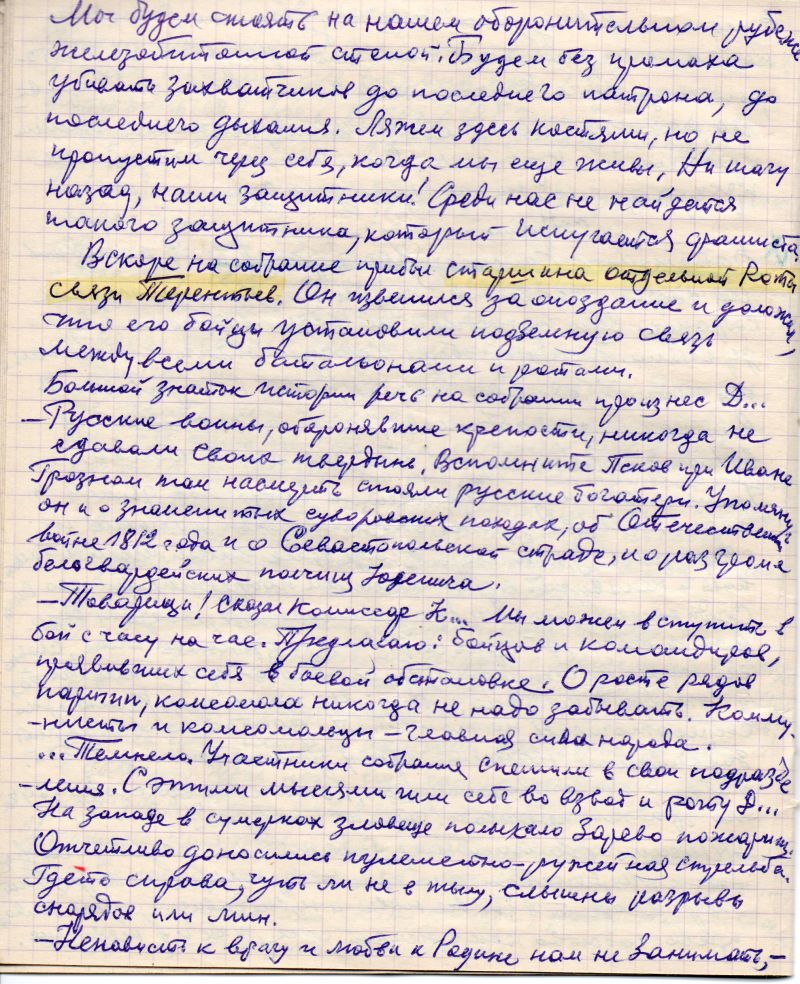 Мы будем стоять на нашем оборонительном рубеже
железобетонной стеной. Будем без промаха
убивать захватчиков до последнего патрона, до
последнего дыхания. Ляжем здесь костями, но не
пропустим через себя, когда мы еще живы, Ни шагу
назад, наши защитники! Среди нас не найдется
такого защитника, который испугается фашиста.
Вскоре на собрание прибыл старшина отдельной Роты
связи Терентьев. Он извинился за опоздание и доложил,
что его бойцы установили подземную связь
между всеми батальонами и ротами.
Большой знаток истории речь на собрании произнес Д...
– Русские воины, оборонявшие крепости, никогда не
сдавали своих твердынь. Вспомните Псков при Иване
Грозном там насмерть стояли русские богатыри. Упомянул
он и о знаменитых суворовских походах, об Отечественной
войне 1812 года и о Севастопольской страде, и о разгроме
белогвардейских полчищ Юденича.
– Товарищи! сказал Комиссар К... Мы можем вступить в
бой с часу на час. Предлагаю: бойцов и командиров,
проявивших себя в боевой обстановке. О росте рядов
партии, комсомола никогда не надо забывать. Комму-
-нисты и комсомольцы – главная сила народа.
...Темнело. Участники собрания спешили в свои подразде
-ления. С этими мыслями шли себе во взвод и роту Д...
На западе в сумерках зловеще полыхало Зарево пожарищ.
Отчетливо доносились пулеметно-ружейная стрельба.
Где-то справа, чуть ли не в тылу, слышны разрывы
снарядов или мин.
– Ненависть к врагу и любви к Родине нам не Занимать, –